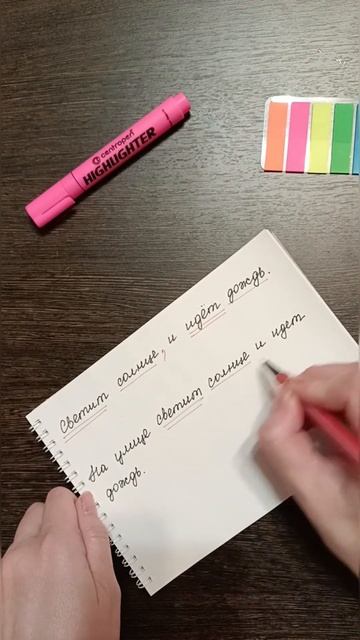 centropen
HIGHLIGHTER
Светит солнце, и идёт дождь.
На улице светит солнце и идет
дождь.